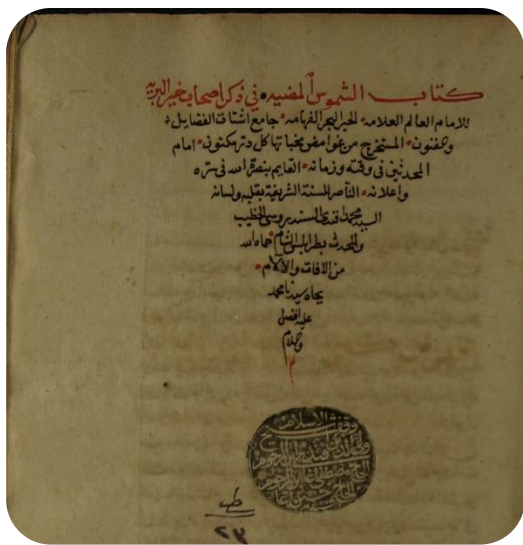 كتاب الشموس المضيه في ذكر اصحاب خير البريه
للامام العالم العلامه الحبر البحر الفهامه جامع اشتات الفضايل
والفنون المستخرج من غوامض مخباتها كل در مكنون امام
المحدثين في وقته وزمانه القايم بنصرة الله في سره
واعلانه الناصر للسنة الشريفة بقلبه ولسانه
السيد محمد افندي السندروسي الخطيب
والمحدث بطرابلس الشام حماه الله
من الافات والآلام
بجاه سيدنا محمد
عليه افضل
وسلام
م
وقف شيخ الاسلام
ط
٢٣